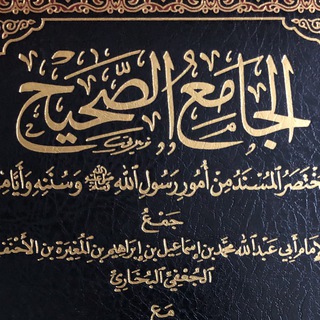 الجَامِعُ الصَّحِيح
المُسْنَدُ مِنْ أُمُورِ رَسُولِ اللهِ ﷺ وَسُنَنِهِ
جَمَعَ
أَبِي عَبْدِ اللهِ مُحَمَّدِ بْنِ إِسْمَاعِيلَ بْنِ إِبْرَاهِيمَ بْنِ المُغِيرَةِ بْنِ
الجُعْفِيِّ البُخَارِيِّ
مَعَ